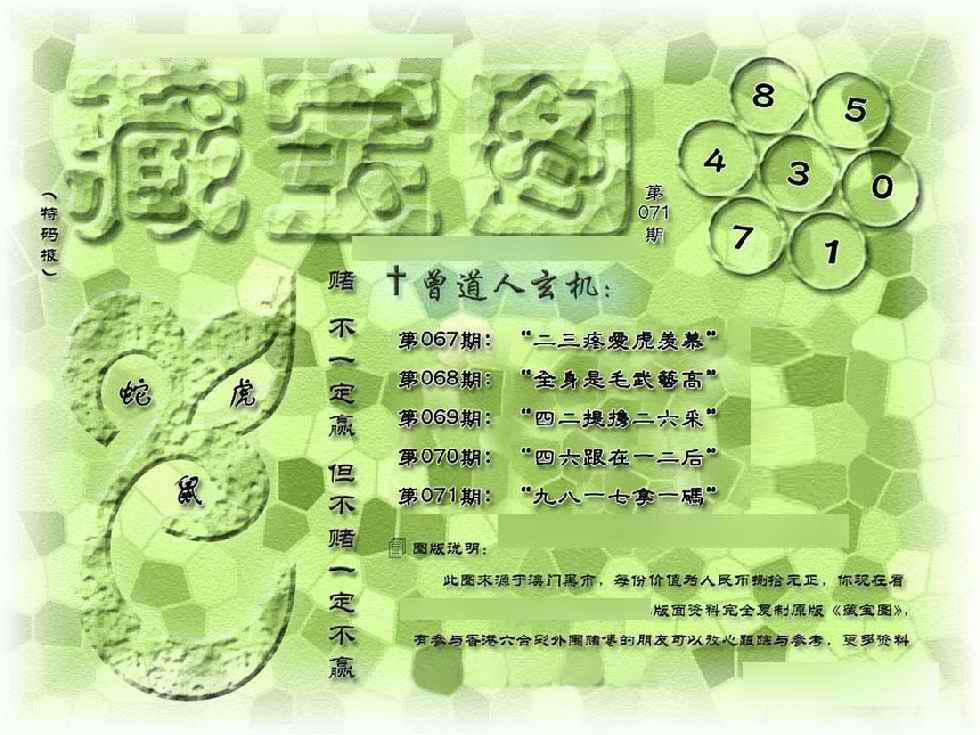 藏宝图
(特码报)
第
071
期
8
5
4
3
0
7
1
赌不一定赢 但不赌一定不赢
曾道人玄机:
第067期: “二三疼愛虎羡慕”
第068期: “全身是毛武藝高”
第069期: “四二提携二六采”
第070期: “四六跟在一二后”
第071期: “九八一七拿一碼”
蛇
虎
鼠
图版说明:
此图来源于澳门黑市, 每份价值为人民币捌拾元正, 你现在看
版面资料完全复制原版《藏宝图》,
有参与香港六合彩外围赌博的朋友可以放心跟踪与参考, 更多资料